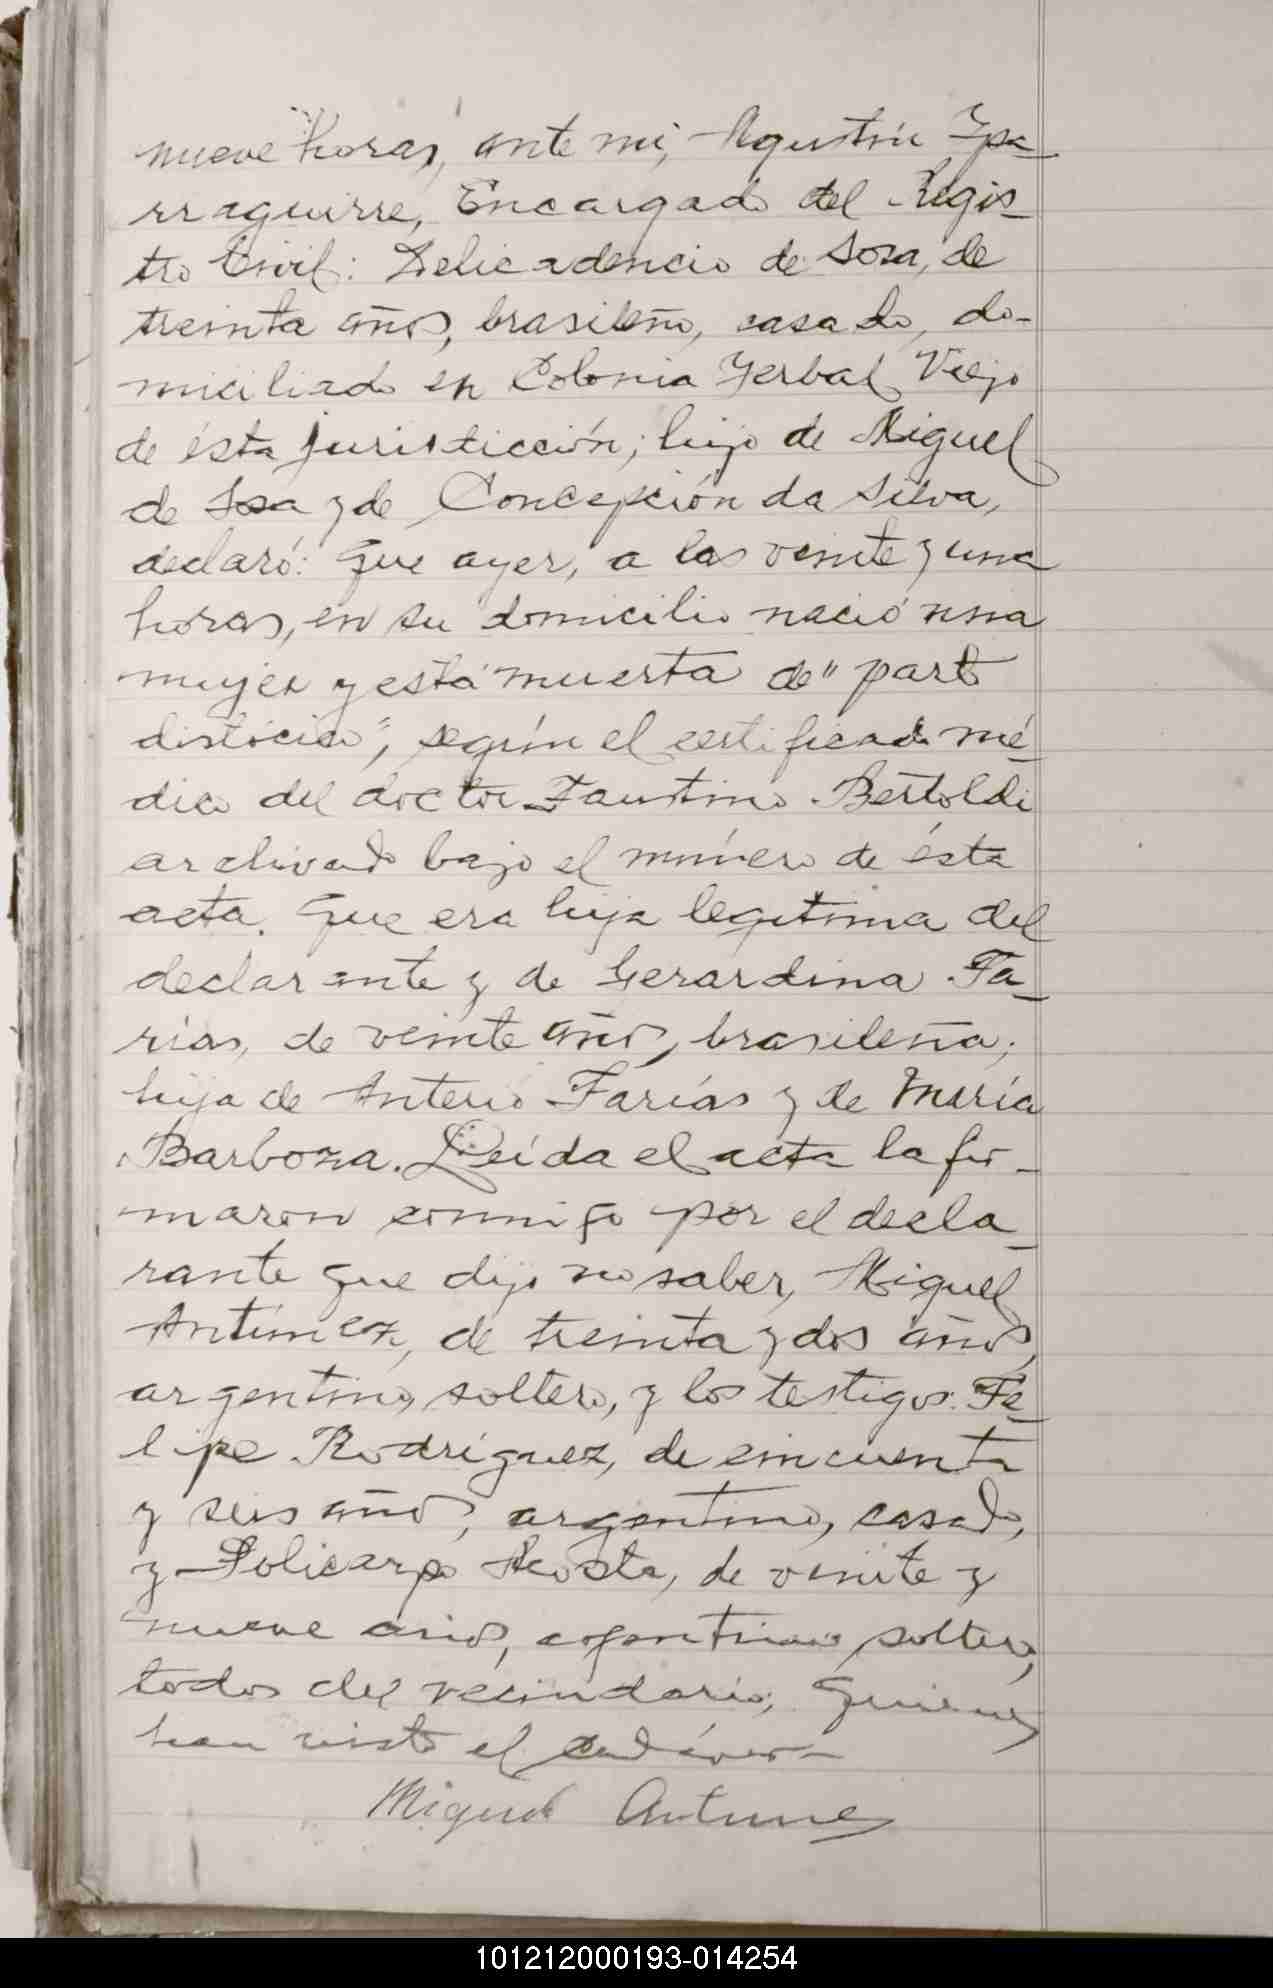 nueve horas, ante mi, Agustín Ypa-
rraguirre, Encargado del Regis-
tro Civil: Delicadencio de Sosa, de
treinta años, brasileño, casado, do-
miciliado en Colonia Yerbal Viejo
de ésta jurisdicción; hijo de Miguel
de Sosa y de Concepción da Silva,
declaró: Que ayer, a las veinte y una
horas, en su domicilio nació una
mujer y está muerta de "parto
distócico", según el certificado mé-
dico del doctor Faustino Bertoldi
archivado bajo el número de ésta
acta. Que era hija legitima del
declarante y de Gerardina Fa-
rías, de veinte años, brasileña;
hija de Anterio Farías y de María
Barboza. Leída el acta la fir-
maron conmigo por el decla-
rante que dijo no saber, Miguel
Antúnez, de treinta y dos años,
argentino, soltero, y los testigos: Fe-
lipe Rodríguez, de cincuenta
y seis años, argentino, casado,
y Policarpo Acosta, de veinte y
nueve años, argentino, soltero,
todos del vecindario; Quienes
han visto el cadáver-
Miguel Antunez
101212000193-014254